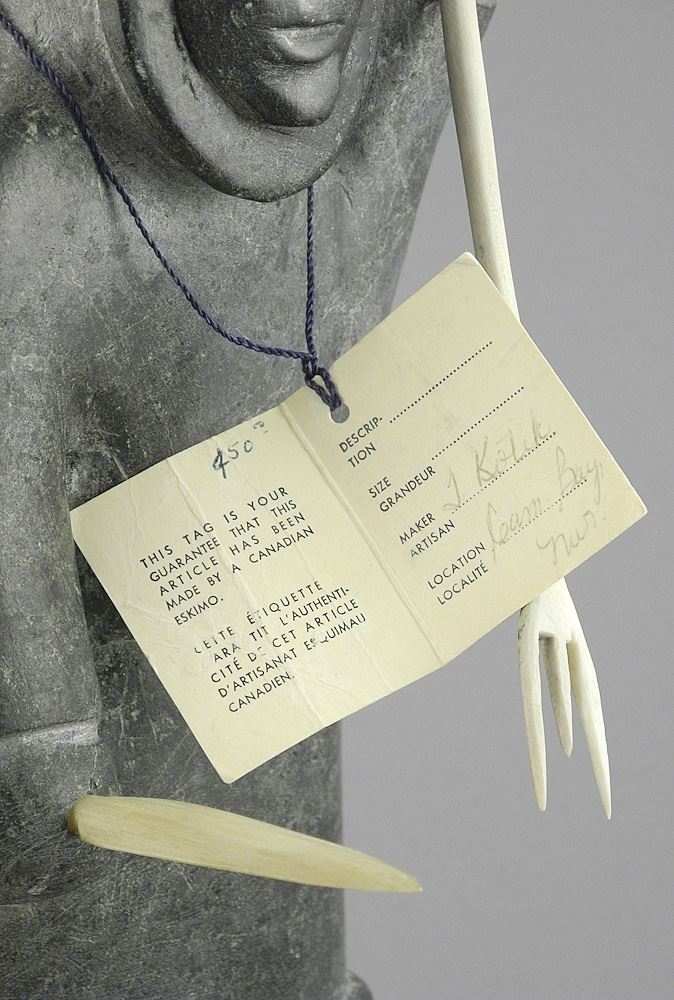 450⁰⁰
THIS TAG IS YOUR
GUARANTEE THAT THIS
ARTICLE HAS BEEN
MADE BY A CANADIAN
ESKIMO.
CETTE ÉTIQUETTE
GARANTIT L'AUTHENTI-
CITÉ DE CET ARTICLE
D'ARTISANAT ESQUIMAU
CANADIEN.
DESCRIP-
TION
SIZE
GRANDEUR
MAKER
ARTISAN
Kolik
LOCATION
LOCALITÉ
Bay